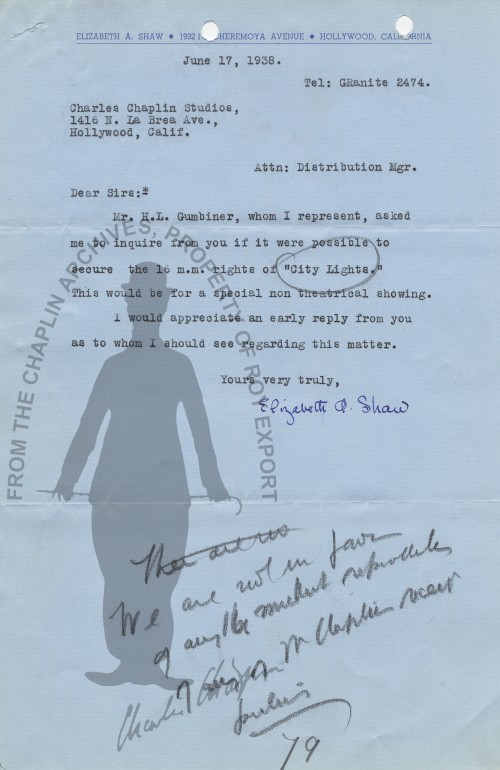 ELIZABETH A. SHAW • 1932 N. CHEREMOYA AVENUE • HOLLYWOOD, CALIFORNIA
June 17, 1938.
Tel: GRanite 2474.
Charles Chaplin Studios,
1416 N. La Brea Ave.,
Hollywood, Calif.
Attn: Distribution Mgr.
Dear Sirs:*
Mr. H.L. Gumbiner, whom I represent, asked
me to inquire from you if it were possible to
secure the 16 m.m. rights of "City Lights."
This would be for a special non theatrical showing.
I would appreciate an early reply from you
as to whom I should see regarding this matter.
Yours very truly,
Elizabeth A. Shaw
FROM THE CHAPLIN ARCHIVES, PROPERTY OF ROY EXPORT
We are not in favor
of any
of Mr Chaplin